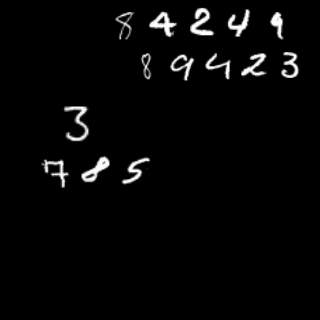 84249
89423
3
785